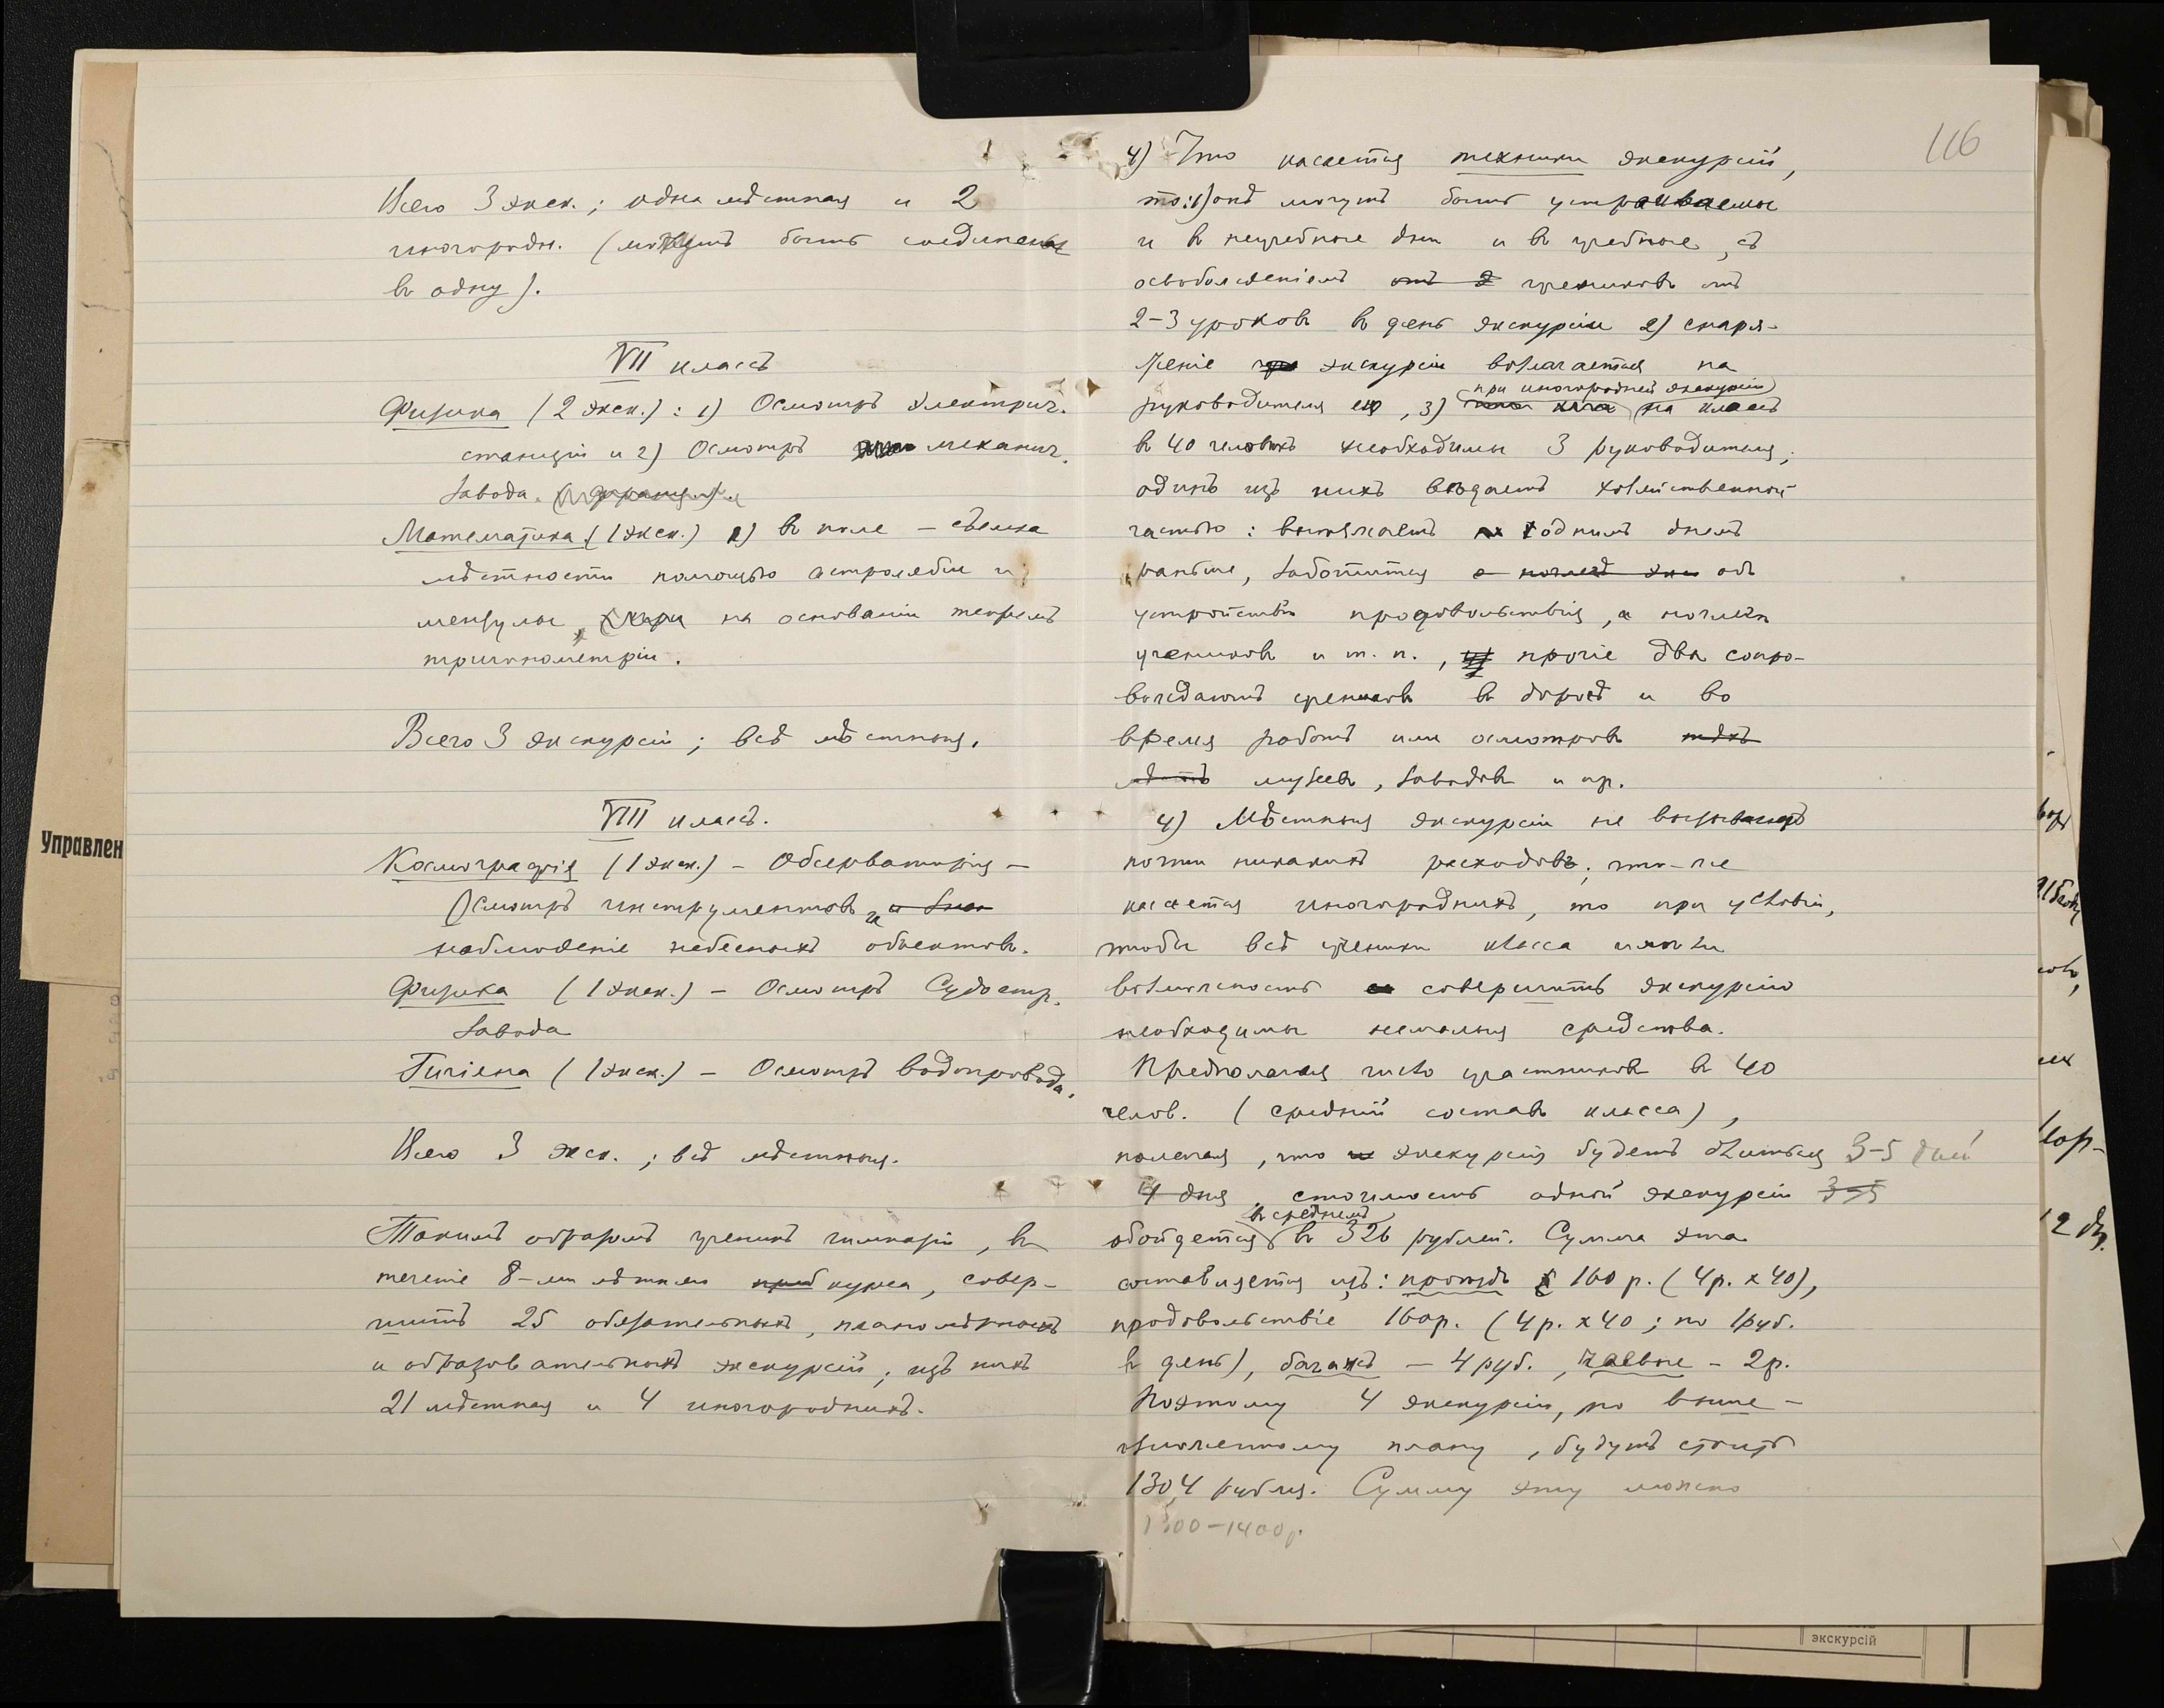 Всего 3 экск.; одна мѣстная и 2
иногородн. (могутъ быть соединены
въ одну).
VII классъ
Физика (2 экск.): 1) Осмотръ электрич.
станціи и 2) Осмотръ механич.
завода.
Математика (1 экск.) 1) въ поле – съемка
мѣстности помощью астролябіи и
мензулы, на основаніи теоремъ
тригонометріи.
Всего 3 экскурсіи; всѣ мѣстныя.
VIII классъ.
Космографія (1 экск.) – Обсерваторія –
Осмотръ инструментовъ и
наблюденіе небесныхъ объектовъ.
Физика (1 экск.) – Осмотръ Судостр.
завода
Гигіена (1 экск.) – Осмотръ водопровода.
Всего 3 экск.; всѣ мѣстныя.
Такимъ образомъ ученикъ гимназіи, въ
теченіе 8-ми лѣтняго курса, совер-
шитъ 25 обязательныхъ, планомѣрныхъ
и образовательныхъ экскурсій; изъ нихъ
21 мѣстная и 4 иногороднихъ.
116
4) Что касается техники экскурсій,
то: 1) онѣ могутъ быть устраиваемы
и въ неучебные дни и въ учебные, съ
освобожденіемъ учениковъ отъ
2-3 уроковъ въ день экскурсіи 2) снаря-
женіе экскурсіи возлагается на
руководителя ея, 3) при иногородней экскурсіи на классъ
въ 40 человѣкъ необходимы 3 руководителя;
одинъ изъ нихъ вѣдаетъ хозяйственной
частью: выѣзжаетъ однимъ днемъ
раньше, заботится объ
устройствѣ продовольствія, ночлега
учениковъ и т. п., прочіе два сопро-
вождаютъ учениковъ въ дорогѣ и во
время работъ или осмотровъ
музеевъ, заводовъ и пр.
4) Мѣстныя экскурсіи не вызываютъ
почти никакихъ расходовъ; что-же
касается иногороднихъ, то при условіи,
чтобы всѣ ученики класса имѣли
возможность совершить экскурсію
необходимы немалыя средства.
Предполагая число участниковъ въ 40
челов. (средній составъ класса),
полагая, что экскурсія будетъ длиться 3-5 дней
4 дня, стоимость одной экскурсіи 3-5
обойдется въ среднемъ въ 326 рублей. Сумма эта
составляется изъ: проѣздъ 160 р. (4 р. x 40),
продовольствіе 160 р. (4 р. x 40; по 1 руб.
въ день), багажъ – 4 руб., чаевые – 2 р.
Поэтому 4 экскурсіи, по выше-
изложенному плану, будутъ стоить
1304 рубля. Сумму эту можно
1300-1400 р.
Управлен
экскурсій